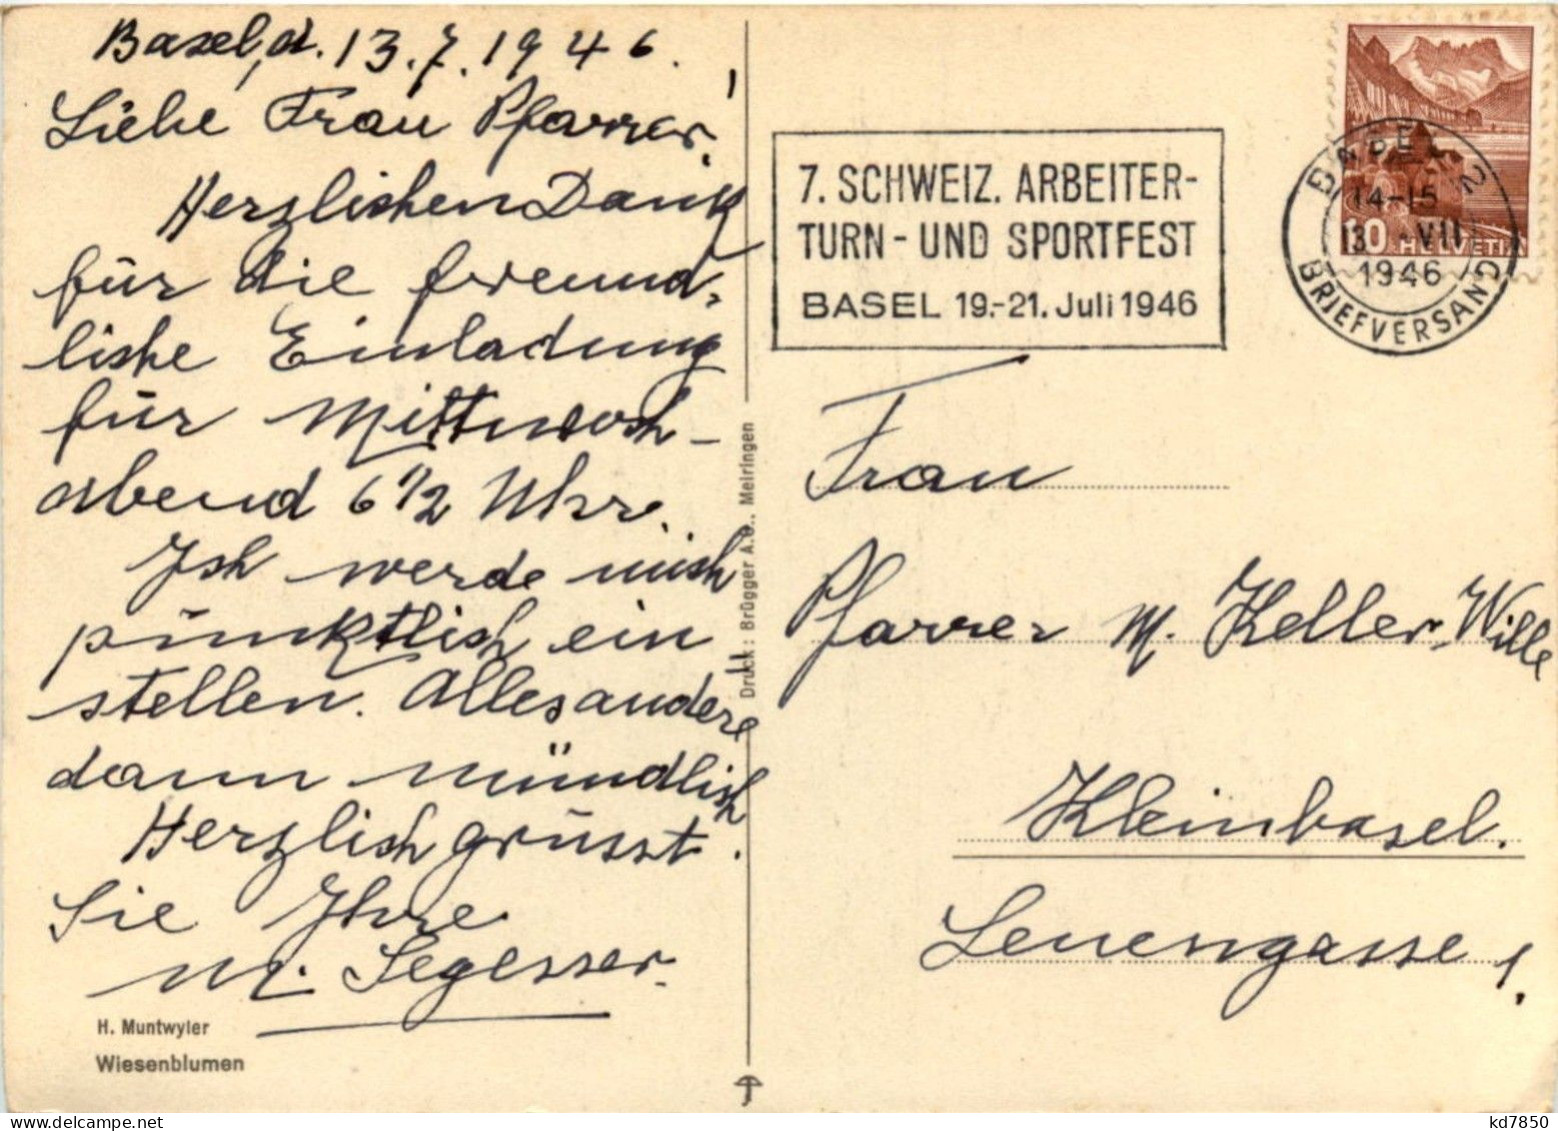 Basel, d. 13.7.1946.
Liebe Frau Pfarrer!
Herzlichen Dank
für die freund-
liche Einladung
für Mittwoch-
abend 6 1/2 Uhr.
Ich werde mich
pünktlich ein
stellen. Alles andere
dann mündlich
Herzlich grüsst.
Sie Ihre
M. Segesser.
H. Muntwyler
Wiesenblumen
Druck: Brügger A.G., Meiringen
7. SCHWEIZ. ARBEITER-
TURN- UND SPORTFEST
BASEL 19.-21. Juli 1946
BASEL 2
14-15
13. VII
1946
BRIEFVERSAND
10 HELVETIA
Frau
Pfarrer M. Keller-Wille
Kleinbasel.
Leuengasse 1.
kd7850